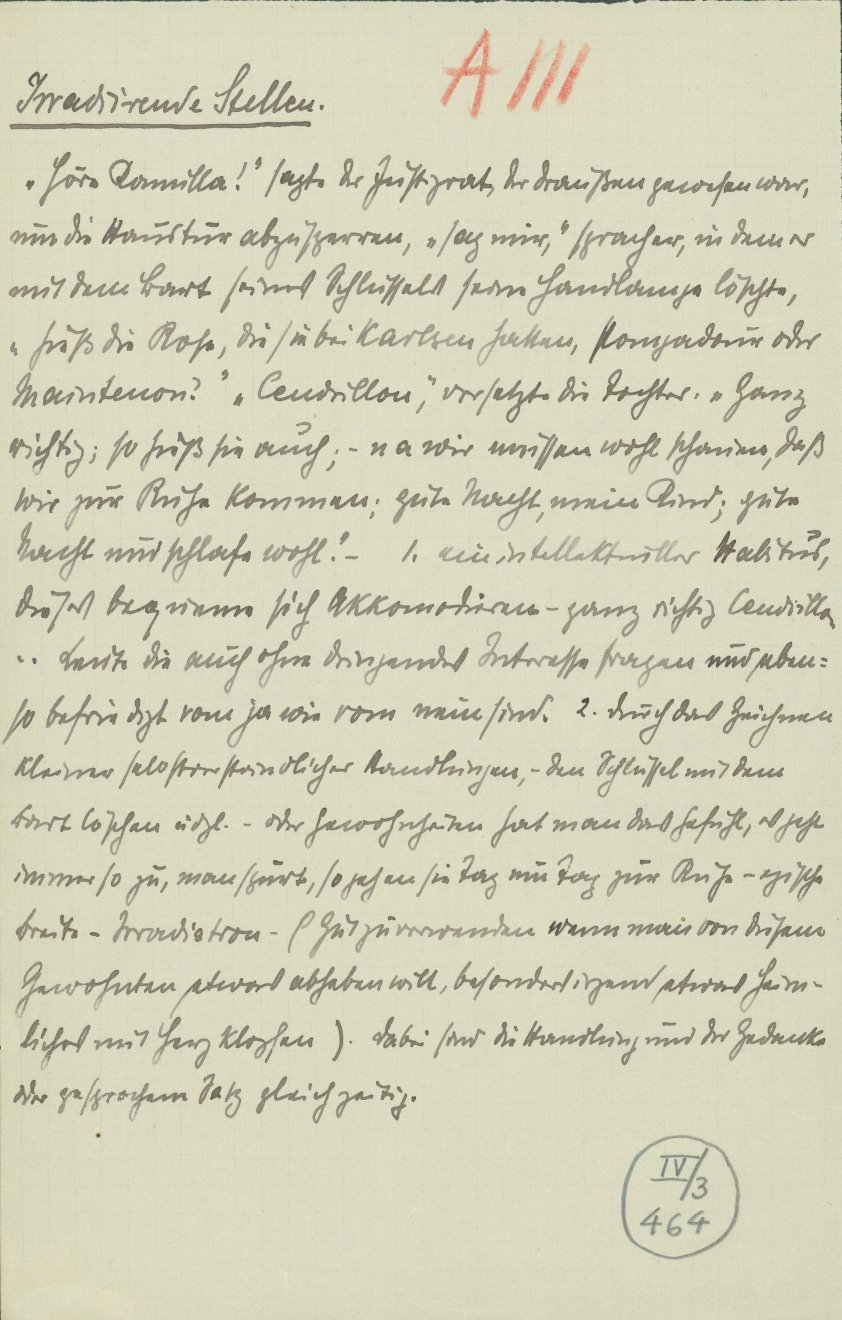 A III
Irradiirende Stellen.
„Höre Kamilla!" sagte der Justizrat, der draußen gewesen war,
um die Haustür abzusperren, „sag mir," sprach er, in dem er
mit dem Bart seines Schlüssels seine Handlampe löschte,
„hieß die Rose, die sie bei Karlsen hatten, Pompadour oder
Maintenon?" „Cendrillon", versetzte die Tochter. „Ganz
richtig; so hieß sie auch; – na wir müssen wohl schauen, daß
wir zur Ruhe kommen; gute Nacht, mein Kind; gute
Nacht und schlafe wohl!" – 1. ein intellektueller Habitus,
dieses bequeme sich Akkomodieren – ganz richtig Cendrillon
.. Leute die auch ohne dringendes Interesse fragen und eben=
so befriedigt vom ja wie vom nein sind. 2. durch das Zeichnen
kleiner selbstverständlicher Handlungen, – den Schlüssel mit dem
Bart löschen udgl. – oder Gewohnheiten hat man das Gefühl, es geht
immer so zu, man spürt, so gehen sie Tag um Tag zur Ruhe – epische
Breite – Irradiation – (Gut zu verwenden wenn man von diesem
Gewohnten etwas abheben will, besonders irgend etwas heim-
liches mit Herzklopfen). Dabei sind die Handlung und der Gedanke
oder gesprochene Satz gleichzeitig.
IV/3
464